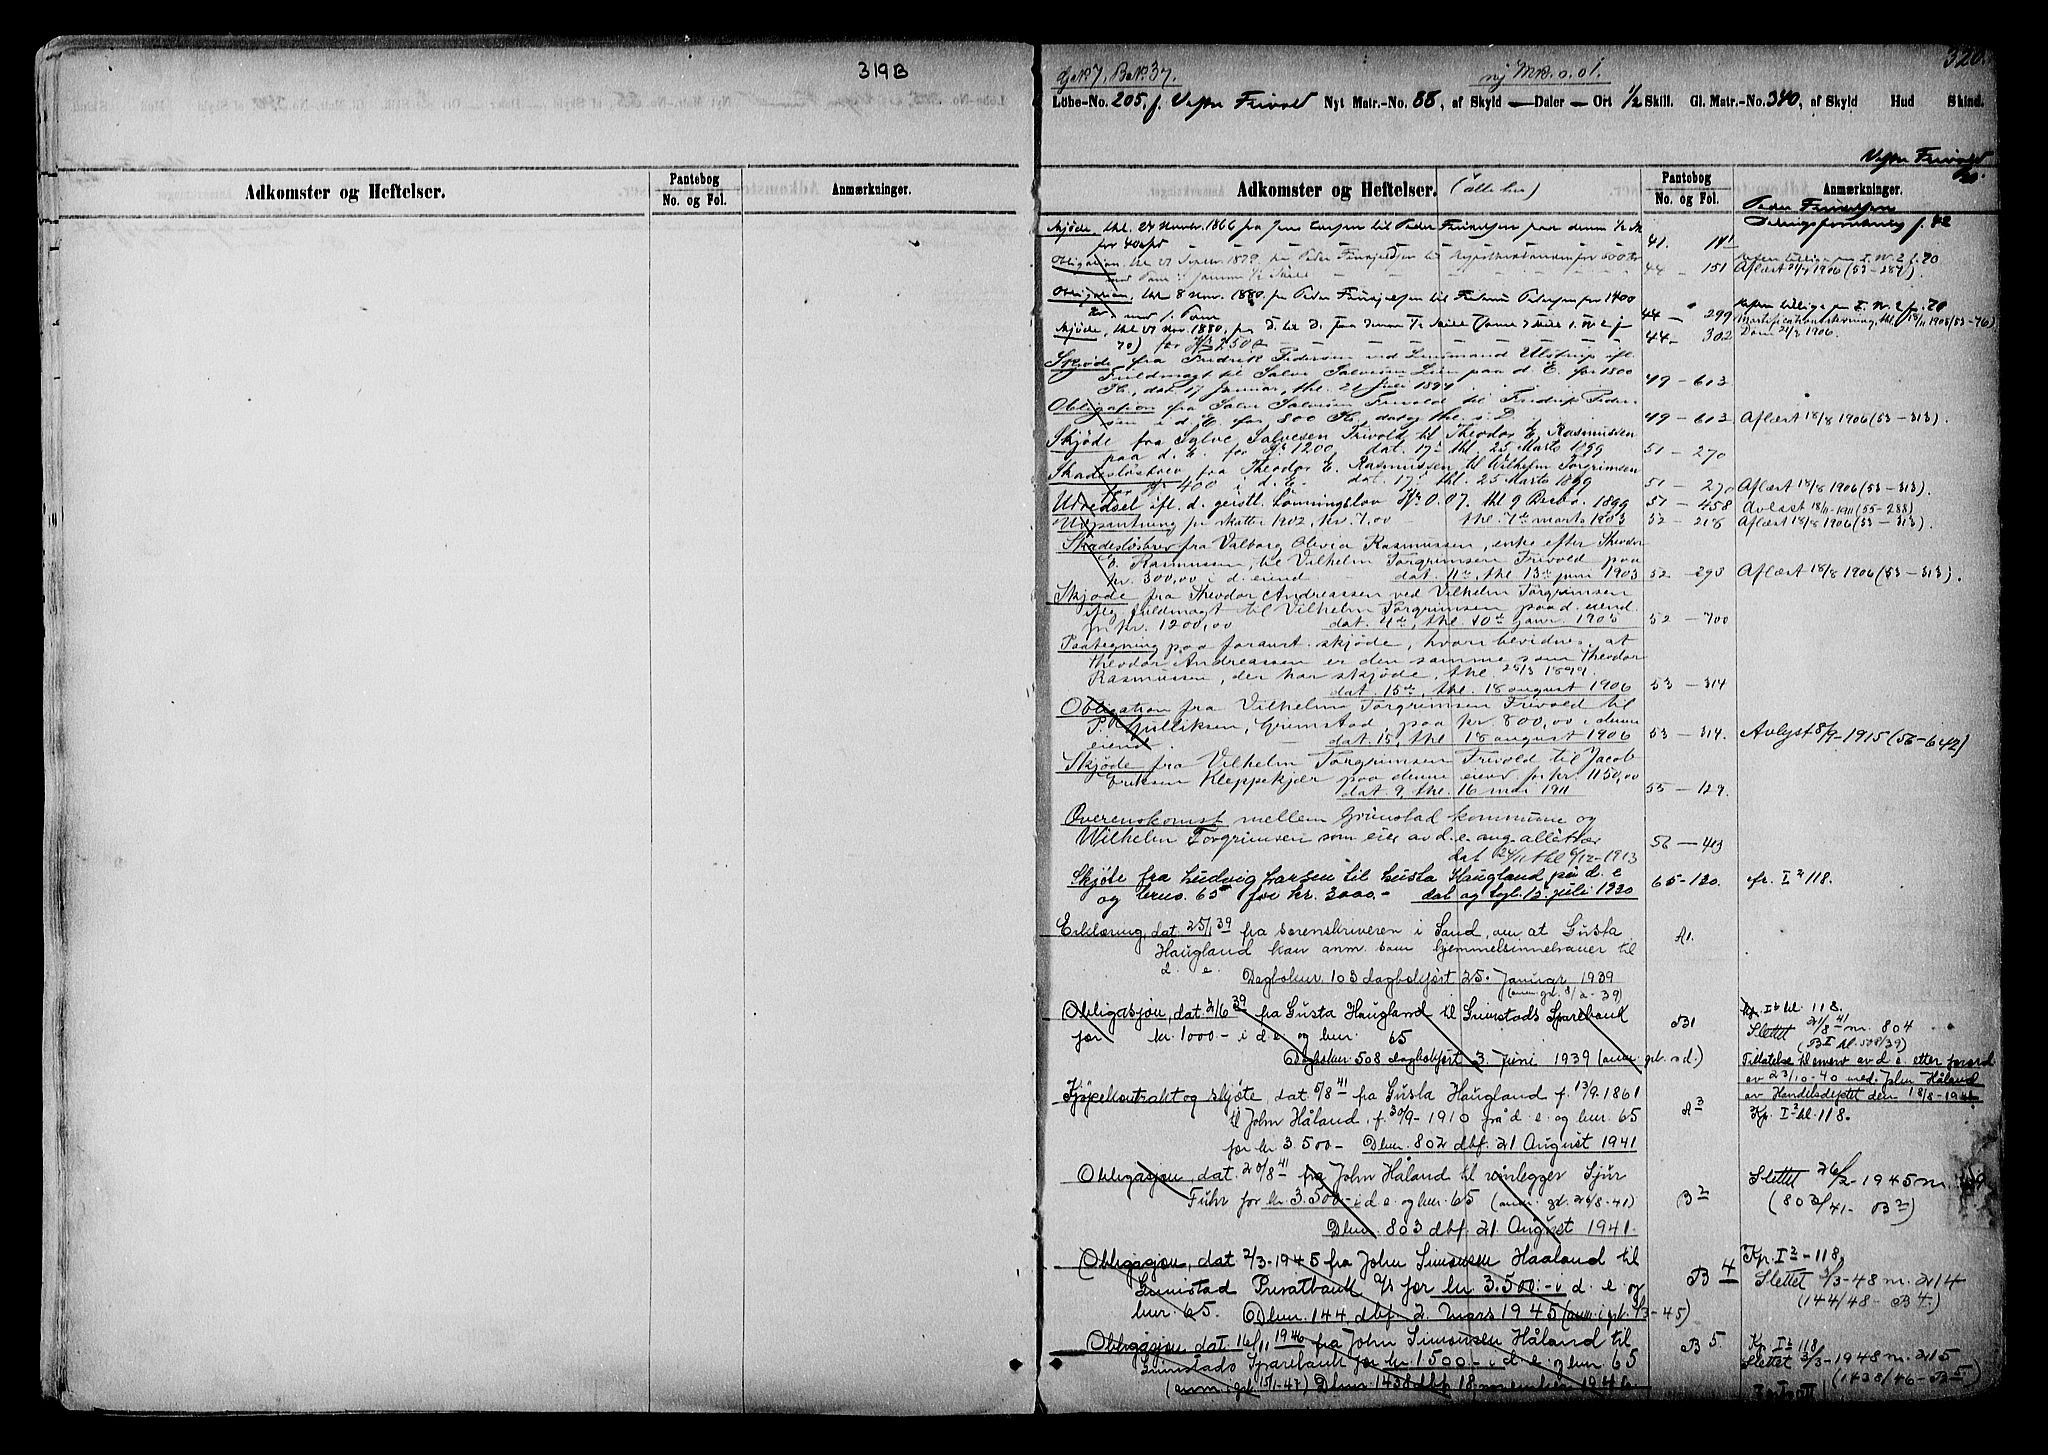 319B
Adkomster og Heftelser.
Pantebog
No. og Fol.
Anmærkninger.
320.
G.N. 7, B.N. 37.
ny Mk. 0.01.
Løbe-No. 205. f. Vestre Frivold Nyt Matr.-No. 88, af Skyld — Daler — Ort 1/2 Skill. Gl. Matr.-No. 340, af Skyld Hud Skind.
Vestre Frivold
Adkomster og Heftelser. (alle her)
Pantebog
No. og Fol.
Anmærkninger.
Skjøde, thl. 27 Novbr. 1866 fra Jens Larsen til Peder
for 40 Spd 41. 141
Obligation, thl. 27 Septbr. 1879 fra Peder
44 - 151 Aflæst 21/4 1906 (53-287).
Obligation, thl. 8 Nov. 1880, fra Peder til Fredrik Pedersen for 1400
Kr. med 1. Pant 44 - 299
Skjøde, thl. 27 Nov. 1880, fra D. til D. paa denne 1/2 Skill
70) for Kr 250 44 - 302 Dom 21/2 1906.
Skjøde fra Fredrik Pedersen ved Lensmand Ulstrup ifl.
Fuldmagt til Salve Salvesen Lien paa d. E. for 1800
Kr., dat. 17 Januar, thl. 21 Juli 1894 49 - 603
Obligation fra Salve Salvesen Frivold til Fredrik Peder-
sen i d. E. for 800 Kr, dat og thl. s. D. 49 - 603 Aflæst 18/8 1906 (53-313).
Skjøde fra Salve Salvesen Frivold til Theodor E. Rasmussen
paa d. E. for Kr 1200, dat. 17 thl. 25 Marts 1899 51 - 270
Skadesløsbrev fra Theodor E. Rasmussen til Wilhelm Torgrimsen
for Kr 400 i d. E. dat. 17 thl. 25 Marts 1899 51 - 270 Aflæst 18/8 1906 (53-313).
Udredsel ifl. d. geistl. Lønningslov Kr 0.07. thl 9 Decbr. 1899 51 - 458 Avlæst 18/11-1911 (55-288)
Udpantning for skatter 1902, kr. 7,00 — thl. 7de marts 1903 52 - 218 Aflæst 18/8 1906 (53-313)
Skadesløsbrev fra Valborg Olivia Rasmussen, enke efter Theodor
E. Rasmussen, til Vilhelm Torgrimsen Frivold paa
kr. 300,00 i d. eiend dat 11te, thl 13de juni 1903 52 - 295 Aflæst 18/8 1906 (53-313).
Skjøde fra Theodor Andreassen ved Vilhelm Torgrimsen
ifig. fuldmagt til Vilhelm Torgrimsen paa d. eiend.
for kr. 1200,00 dat. 4de, thl. 10de janr. 1905 52 - 700
Paategning paa foranst. skjøde, hvori bevidnes, at
Theodor Andreassen er den samme som Theodor
Rasmussen, der har skjøde, thl. 25/3 1899.
dat. 15de, thl. 18 august 1906 53 - 314
Obligation fra Vilhelm Torgrimsen Frivold til
P. Gulliksen, Grimstad, paa kr. 800,00 i denne
eiend. dat. 15, thl. 18 august 1906 53 - 314. Avlyst 8/9-1915 (56-642)
Skjøde fra Vilhelm Torgrimsen Frivold til Jacob
Eriksen Kleppekjær paa denne eiend for kr. 1150,00
dat. 9, thl. 16 mai 1911 55 - 129.
Overenskomst mellem Grimstad kommune og
Wilhelm Torgrimsen som eier av d. e. ang.
dat 24/11 thl 6/12-1913 56 - 49
Skjøte fra Ludvig Larsen til Gusta Haugland på d. e
og brno. 65 for kr. 3000.- dat og tgl. 12. juli 1930 65-120. cfr. I2 118.
Erklæring, dat. 25/1 39 fra sorenskriveren i Sand, om at Gusta A1.
Haugland kan anm. som hjemmelsinnehaver til
d. e. Dagboknr. 103 dagbokført 25. Januar 1939
(anm. gb. 8/2-39)
Obligasjon, dat. 2/6 39 fra Gusta Haugland til Grimstads Sparebank B1 Kp. I2 bl. 118.
for kr. 1000.- i d. e og bnr. 65 Slettet 21/8-41 nr. 804
(B I bl. 508/39)
Dagboknr. 508 dagbokført 3. Juni 1939 (anm. gb. s. d.) Tillatelse til erverv av d. e. etter forord
av 23/10-40 med. John Håland
av Handelsdeptet den 18/8-1941
Kjøpekontrakt og skjøte, dat 5/8 41 fra Gusta Haugland f. 13/9-1861
til John Håland, f. 30/9-1910 på d. e. og bnr. 65 A3 Kp. I2 bl. 118.
for kr 3 500.- Dbnr. 802 dbf. 21 August 1941
Obligasjon, dat. 20/8 41 fra John Håland til vinlegger Sjur
Fuhr for kr. 3.500.- i d. e. og bnr. 65 (anm. gb. 26/8-41) B2 Slettet 26/2-1945 nr.
(803/41- B2)
Dbnr. 803 dbf. 21 August 1941.
Obligasjon, dat 2/3-1945 fra John Simonsen Haaland til Kp. I2-118,
Grimstad Privatbank A/S for kr 3.500.- i d. e og B4 Slettet 3/3-48 nr. 214
bnr. 65. Dbnr. 144 dbf. 2. Mars 1945 (anm. i gb. 4/3-45) (144/48- B4.)
Obligasjon, dat. 16/11 1946 fra John Simonsen Håland til B5. Kp I2 118
Grimstads Sparebank for kr 1500.- i d. e. og bnr 65 Slettet 3/3-1948 nr. 215
(anm. i gb. 15/1-47) Dbnr 1438 dbf 18. november 1946 (1438/46- B5)